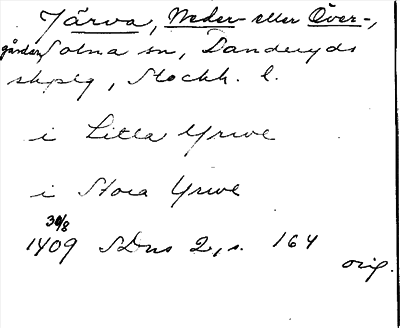 Järva, Neder- eller Över-,
gården, Solna sn, Danderyds
skplg, Stockh. l.
i Litla Yrwe
i Stora Yrwe
30/8
1409 SDns 2, s. 164
orig.